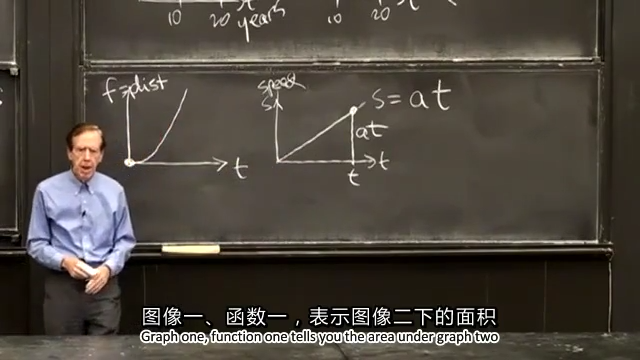 10 20 years 10 20
f = dist
speed
s
s = at
at
t
t
t
图像一、函数一，表示图像二下的面积
Graph one, function one tells you the area under graph two